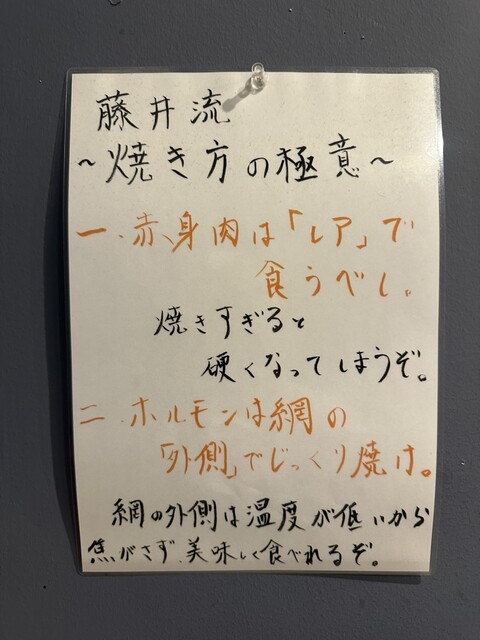 藤井流
~焼き方の極意~
一.赤身肉は「レア」で
食うべし。
焼きすぎると
硬くなってしまうぞ。
二.ホルモンは網の
「外側」でじっくり焼け。
網の外側は温度が低いから
焦がさず、美味しく食べれるぞ。